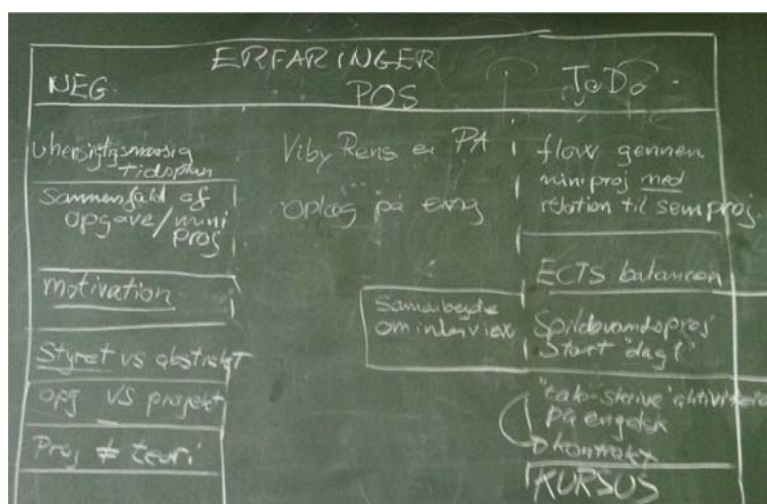 ERFARINGER
NEG.
POS
ToDo
Uhensigtsmæssig
tidsplan
Sammenfald af
opgave/mini
proj
motivation
Styret vs abstrakt
opg vs projekt
Proj ≠ teori
Viby Rens er PA
oplæg på eng
Samarbejde
om interview
flow gennem
miniproj med
relation til semproj.
ECTS balancen
Spildevandsproj
start dag 1
"tale-skrive" aktiviteter
på engelsk
kontrakt
KURSUS